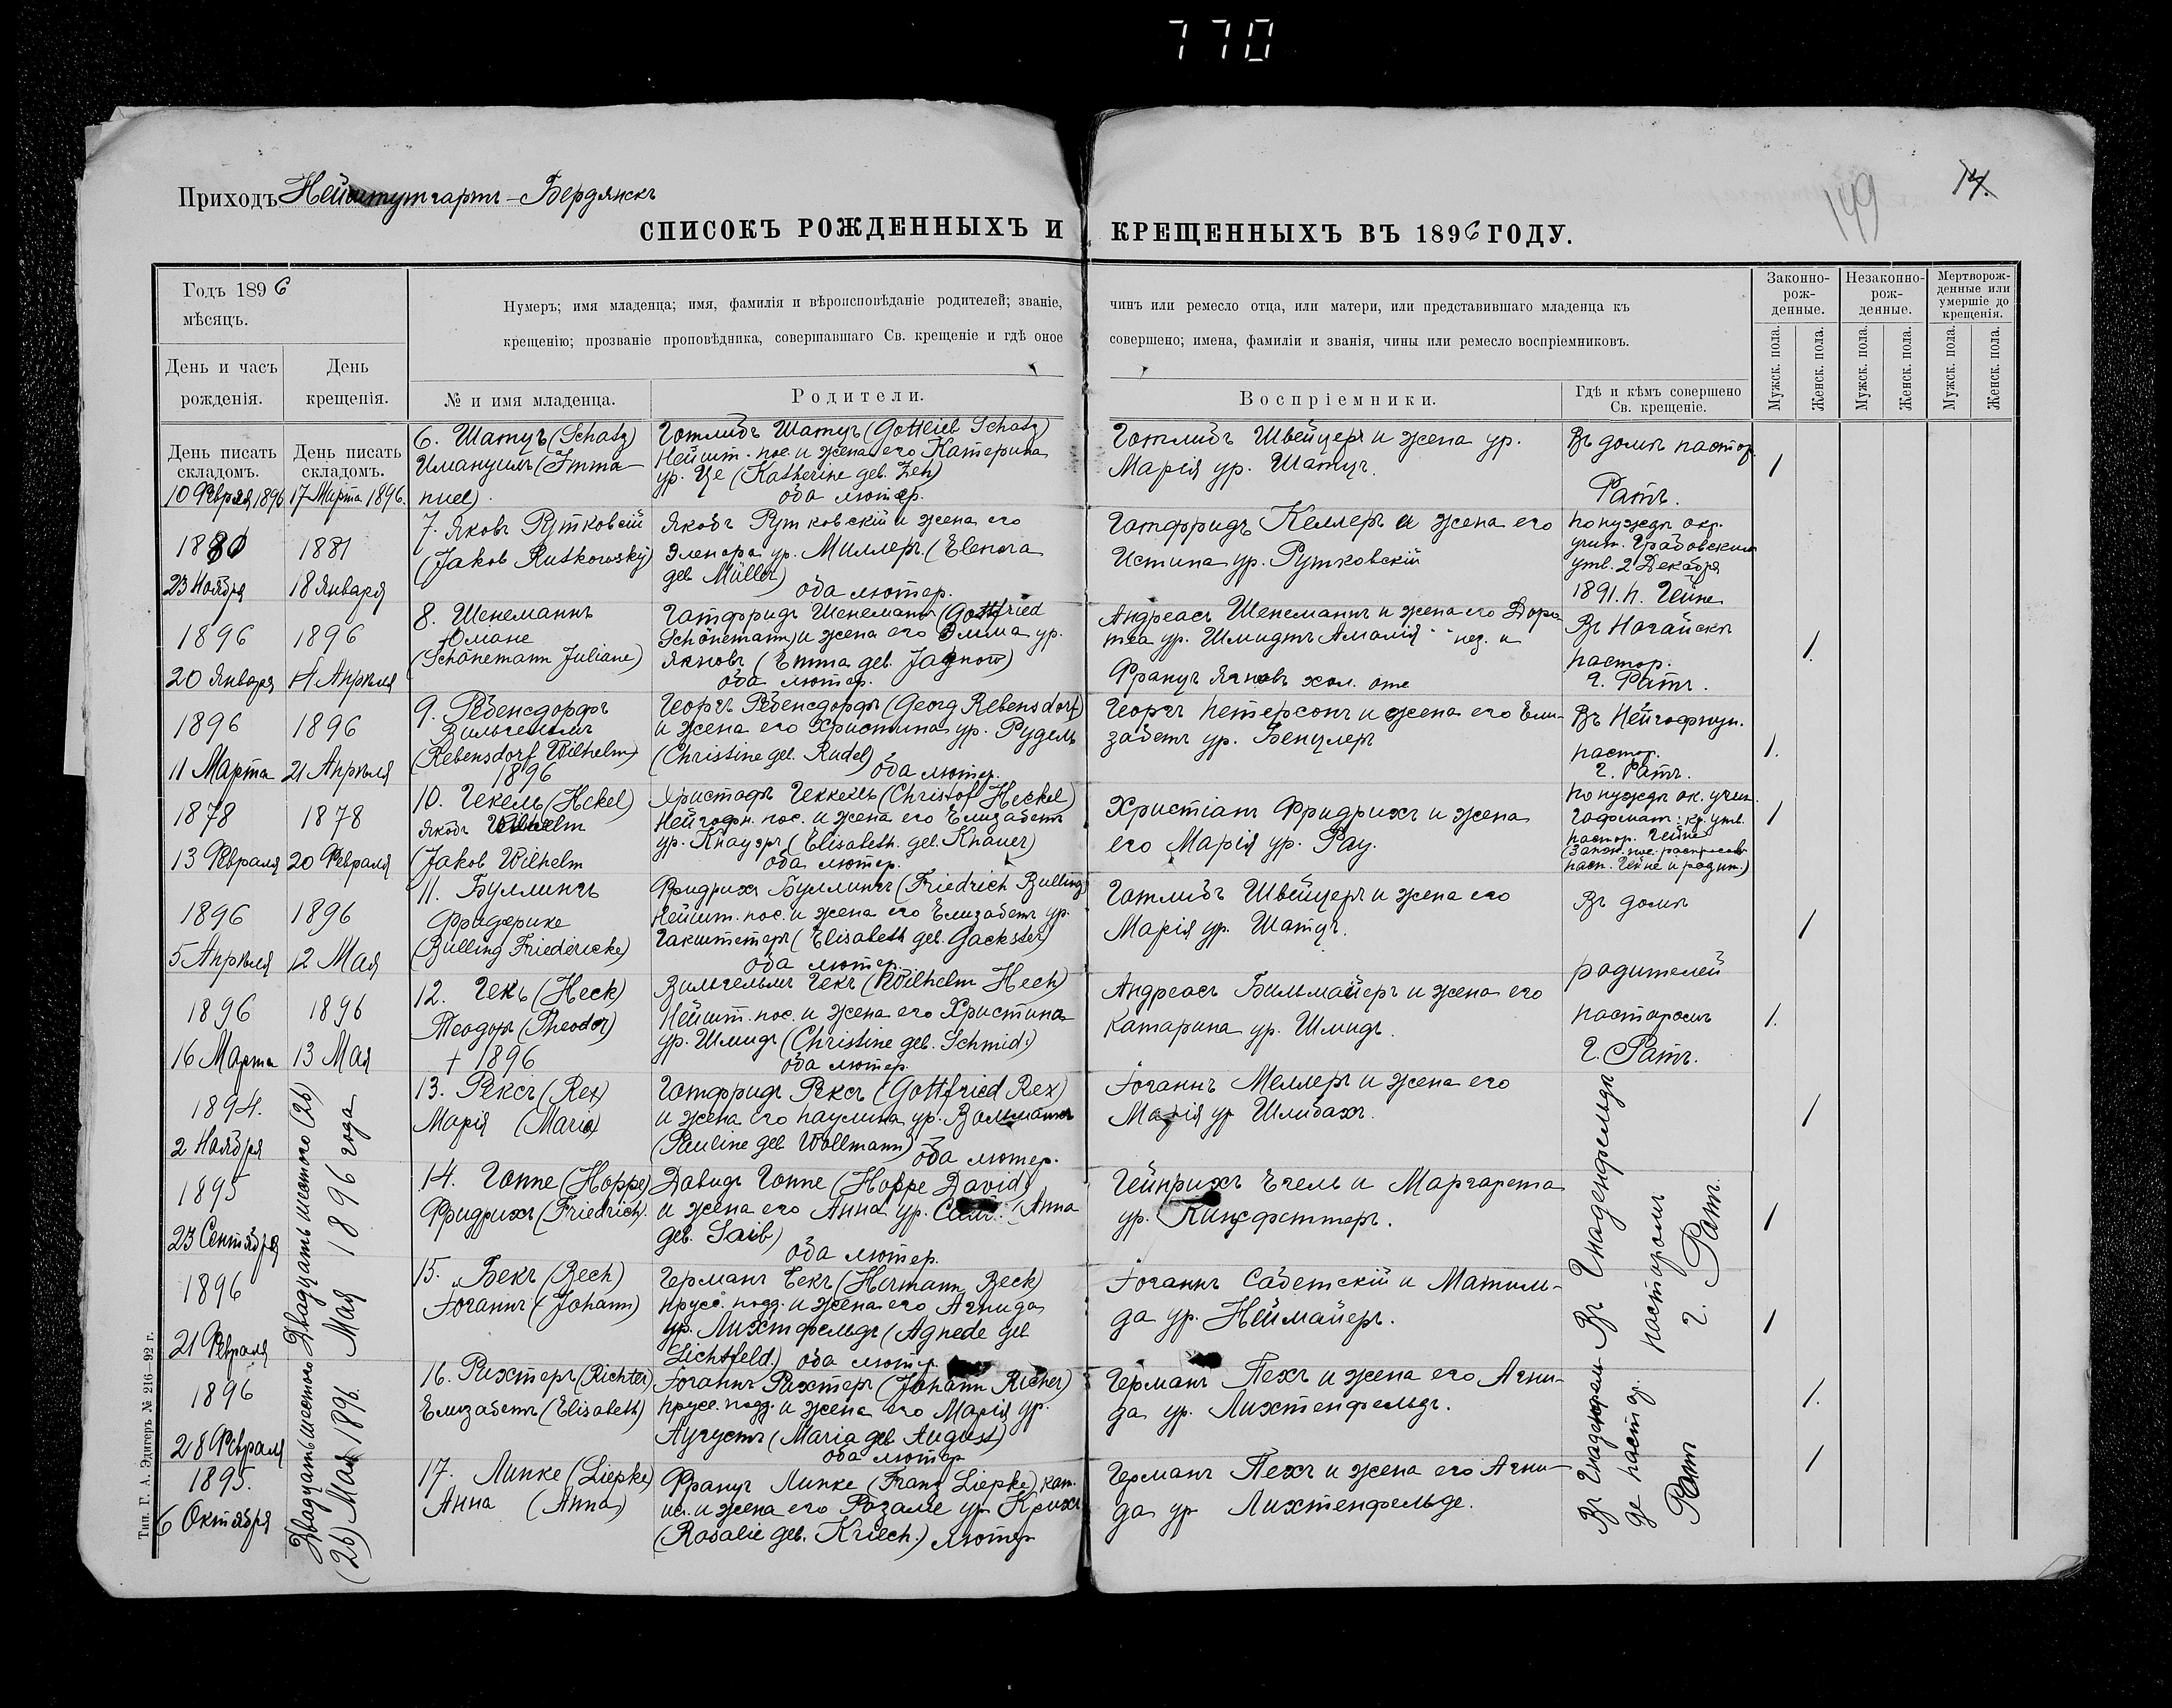 770
149
14.
Приходъ Нейштутгартъ-Бердянскъ
СПИСОКЪ РОЖДЕННЫХЪ И КРЕЩЕННЫХЪ ВЪ 1896 ГОДУ.
Годъ 1896
мѣсяцъ.
День и часъ
рожденія.
День
крещенія.
Нумеръ; имя младенца; имя, фамилія и вѣроисповѣданіе родителей; званіе, чинъ или ремесло отца, или матери, или представившаго младенца къ
крещенію; прозваніе проповѣдника, совершавшаго Св. крещеніе и гдѣ оное совершено; имена, фамиліи и званія, чины или ремесло воспріемниковъ.
№ и имя младенца.
Родители.
Воспріемники.
Гдѣ и кѣмъ совершено
Св. крещеніе.
Законно-
рож-
денные.
Незаконно-
рож-
денные.
Мертворож-
денные или
умершіе до
крещенія.
Мужск. пола.
Женск. пола.
Мужск. пола.
Женск. пола.
Мужск. пола.
Женск. пола.
День писать
складомъ.
10 Февраля 1896
День писать
складомъ.
17 Марта 1896.
6. Шатцъ (Schatz)
Имануилъ (Imma-
nuel).
Готлибъ Шатцъ (Gottlieb Schatz)
Нейшт. пос. и жена его Катерина
ур. Це (Katherine geb. Zeh)
оба лютер.
Готлибъ Швейцеръ и жена ур.
Марія ур. Шатцъ.
Въ домѣ пастор.
Ратъ.
1
1880
23 Ноября
1881
18 Января
7. Яковъ Рутковскій
(Jakob Rutkowsky)
Якобъ Рутковскій и жена его
Эленора ур. Миллеръ (Elenora
geb Müller)
оба лютер.
Готфридъ Келлеръ и жена его
Истина ур. Рутковскій
По нужды окр.
учит. Грабовскимъ
утв. 2 Декабря
1891. п. Гейне
1896
20 Января
1896
14 Апрѣля
8. Шенеманнъ
Юлиане
(Schönemann Juliane)
Готфридъ Шенеманнъ (Gottfried
Schönemann) и жена его Эмма ур.
Ягновъ (Emma geb. Jagnow)
оба лютер.
Андреасъ Шенеманнъ и жена его Доро-
теа ур. Шмидтъ Амалія нез. и
Францъ Ягновъ хол.
Въ Ногайскѣ
пастор.
Г. Ратъ.
1.
1896
11 Марта
1896
21 Апрѣля
9. Ребенсдорфъ
Вильгельмъ
(Rebensdorf Wilhelm)
1896
Георгъ Ребенсдорфъ (Georg Rebensdorf)
и жена его Христина ур. Рудель
(Christine geb. Rudel)
оба лютер.
Георгъ Петерсонъ и жена его Ели-
забетъ ур. Бенцлеръ
Въ Нейгофнун.
пастор.
Г. Ратъ.
1.
1878
13 Февраля
1878
20 Февраля
10. Гекель (Hekel)
Якобъ Wilhelm
(Jakob Wilhelm
Христофъ Геккель (Christof Heckel)
Нейгофн. пос. и жена его Елизабетъ
ур. Кнауеръ (Elisabeth geb. Knauer)
оба лютер.
Христіанъ Фридрихъ и жена
его Марія ур. Рау.
По нужды ок. учит.
Гофманъ: кр. утв.
пастор. Гейне
паст. Гейне и родит.)
1
1896
5 Апрѣля
1896
12 Мая
11. Буллингъ
Фридерике
(Bulling Friedericke)
Фридрихъ Буллингъ (Friedrich Bulling)
Нейшт. пос. и жена его Елизабетъ ур.
Гакштетеръ (Elisabeth geb. Gackster)
оба лютер.
Готлибъ Швейцеръ и жена его
Марія ур. Шатцъ.
Въ домѣ
родителей
1
1896
16 Марта
1896
13 Мая
12. Гекъ (Heck)
Теодоръ (Theodor)
† 1896
Вильгельмъ Гекъ (Wilhelm Hech)
Нейшт. пос. и жена его Христина
ур. Шмидъ (Christine geb. Schmid.)
оба лютер.
Андреасъ Бильмайеръ и жена его
Катарина ур. Шмидъ.
пасторомъ
Г. Ратъ.
1.
1894.
2 Ноября
Двадцать шестого (26)
Мая 1896 года
13. Рексъ (Rex)
Марія (Maria)
Готфридъ Рексъ (Gottfried Rex)
и жена его Паулина ур. Волльманъ
(Pauline geb Wollmann)
оба лютер.
Іоганнъ Меллеръ и жена его
Марія ур Шлибахъ.
Въ Гнаденфельдѣ
пасторомъ
Г. Ратъ.
1
1895
23 Сентября
14. Гоппе (Hoppe)
Фридрихъ (Friedrich).
Давидъ Гоппе (Hoppe David)
и жена его Анна ур. (Anna
geb. Saib)
оба лютер.
Гейнрихъ Егель и Маргарета
ур. Кингфеттеръ.
1
1896
21 Февраля
15. Бекъ (Bech)
Іоганнъ (Johann)
Германъ Бекъ (Hermann Beck)
прусс. подд. и жена его Агнида
ур. Лихтфельдъ (Agnede geb
Lichtfeld.) оба лютер.
Іоганнъ Сабетскій и Матиль-
да ур. Неймайеръ.
1
1896
28 Февраля
Двадцать шестого
(26) Мая 1896.
16. Рихтеръ (Richter)
Елизабетъ (Elisabeth)
Іоганнъ Рихтеръ (Johann Richer)
прусс. подд. и жена его Марія ур.
Аугустъ (Maria geb August)
оба лютер
Германъ Пехъ и жена его Агни-
да ур. Лихтенфельдъ.
Въ Гнаденфель-
де пастор.
Ратъ
1.
1895.
6 Октября
17. Липке (Liepke)
Анна (Anna)
Францъ Липке (Franz Liepke) кат.
ис. и жена его Розалие ур Крихъ
(Rosalie geb. Kriech.) лютер
Германъ Пехъ и жена его Агни-
да ур Лихтенфельде.
1
Тип. Г. А. Эдигеръ № 216—92 г.